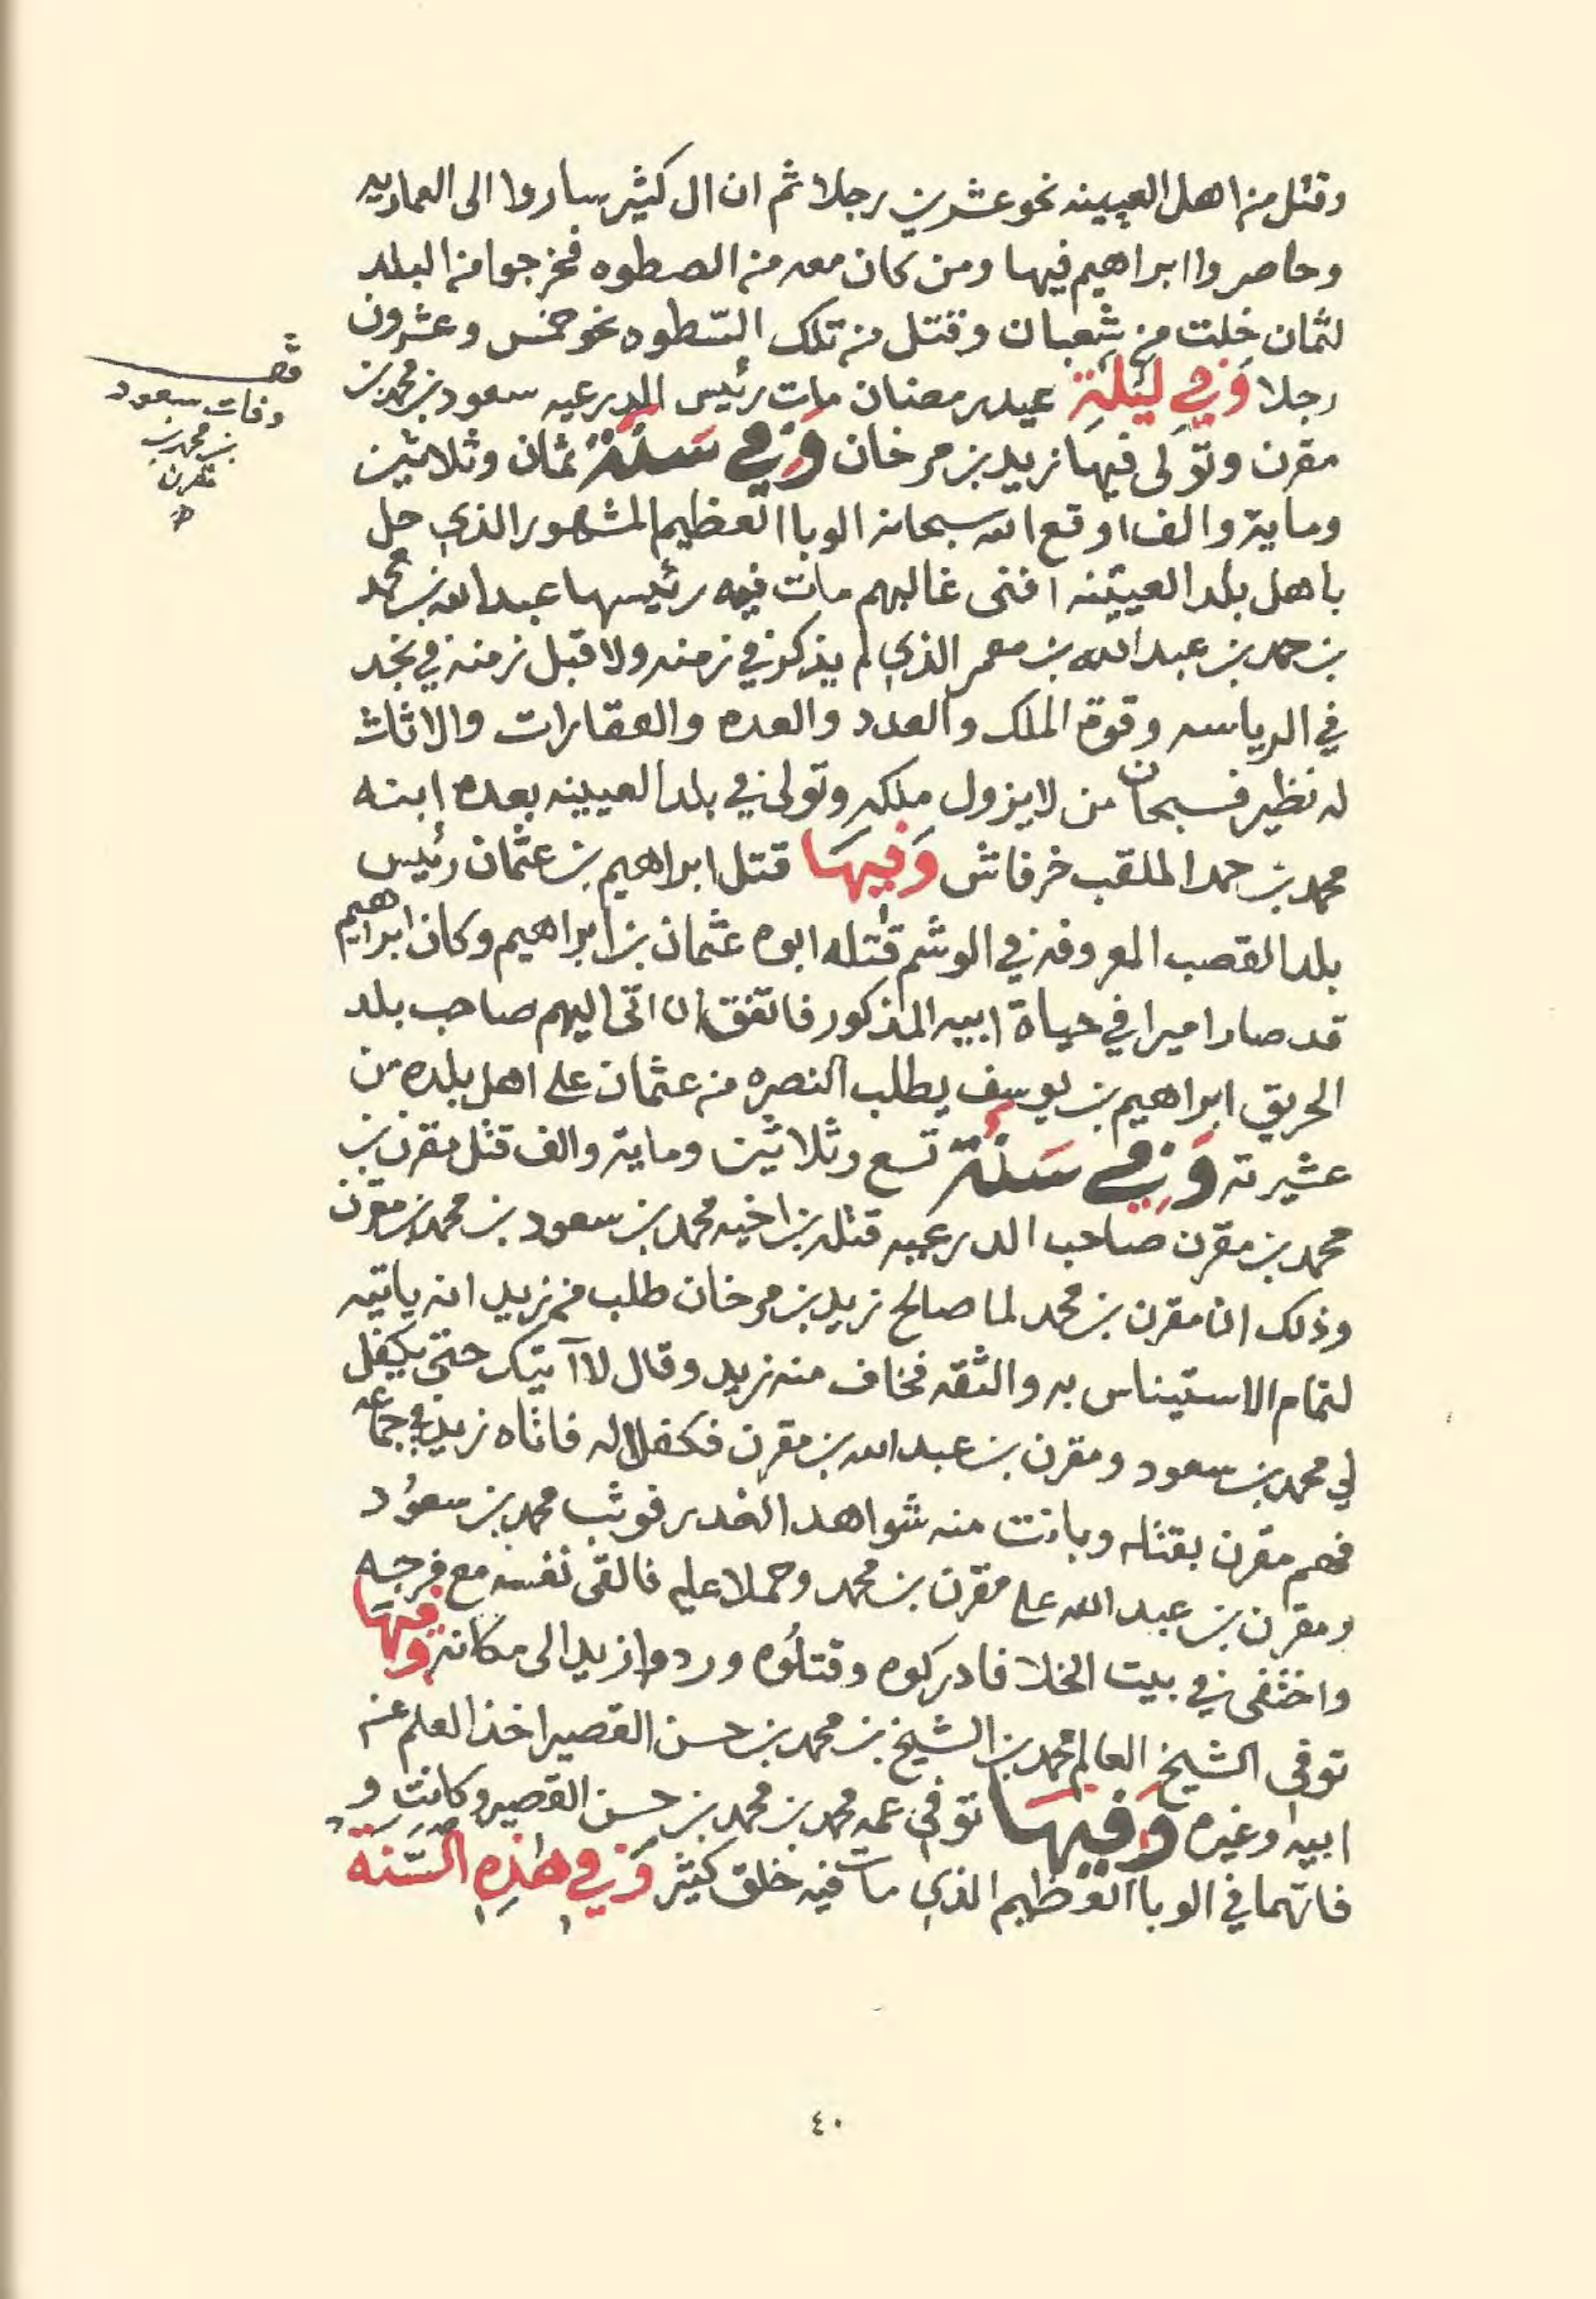 وقتل من اهل العيينه نحو عشرين رجلا ثم ان ال كثير ساروا الى العماريه
وحاصروا ابراهيم فيها ومن كان معه من الصطوه فخرجوا من البلد
لثمان خلت من شعبان وقتل من تلك السّطوه نحو خمس وعشرون
رجلا وَفي لَيْلَةِ عيد رمضان مات رئيس الدرعيه سعود بن محمد بن
مقرن وتولى فيها زيد بن مرخان وَفي سَنَة ثمان وثلاثين
وماية والف اوقع الله سبحانه الوبا العظيم المشهور الذي حل
باهل بلد العيينه افنى غالبهم مات فيه رئيسها عبد الله بن محمد
بن حمد بن عبد الله بن معمر الذي لم يذكر في زمنه ولا قبل زمنه في نجد
في الرياسه وقوة الملك والعدد والعده والعقارات والاثاث
له نظير فسبحان من لا يزول ملكه وتولى في بلد العيينه بعده ابنه
محمد بن حمد الملقب خرفاش وَفيهَا قتل ابراهيم بن عثمان رئيس
بلد القصب المعروفه في الوشم قتله ابوه عثمان بن ابراهيم وكان ابراهيم
قد صار اميرا في حياة ابيه المذكور فاتفق ان اتى اليهم صاحب بلد
الحريق ابراهيم بن يوسف يطلب النصره من عثمان على اهل بلده من
عشيرته وَفي سَنَة تسع وثلاثين وماية والف قتل مقرن بن
محمد بن مقرن صاحب الدرعيه قتله بن اخيه محمد بن سعود بن محمد بن مقرن
وذلك ان مقرن بن محمد لما صالح زيد بن مرخان طلب من زيد انه ياتيه
لتمام الاستيناس به والثقه فخاف منه زيد وقال لا آتيك حتى يكفل
لي محمد بن سعود ومقرن بن عبد الله بن مقرن فكفلا له فاتاه زيد في جماعه
فهم مقرن بقتله وبانت منه شواهد الغدر فوثب محمد بن سعود
ومقرن بن عبد الله على مقرن بن محمد وحملا عليه فالقى نفسه مع فرجه
واختفى في بيت الخلا فادركوه وقتلُوه وردوا زيد الى مكانه وفيهَا
توفى الشيخ العالم محمد بن الشيخ بن محمد بن حسن القصير اخذ العلم عن
ابيه وغيره وَفيهَا توفي عمه محمد بن محمد بن حسن القصير وكانت و
فاتهما في الوبا العظيم الذي مات فيه خلق كثير وَفي هٰذِهِ السَّنة
وفات سعود
بن محمد بن
مقرن
٤٠